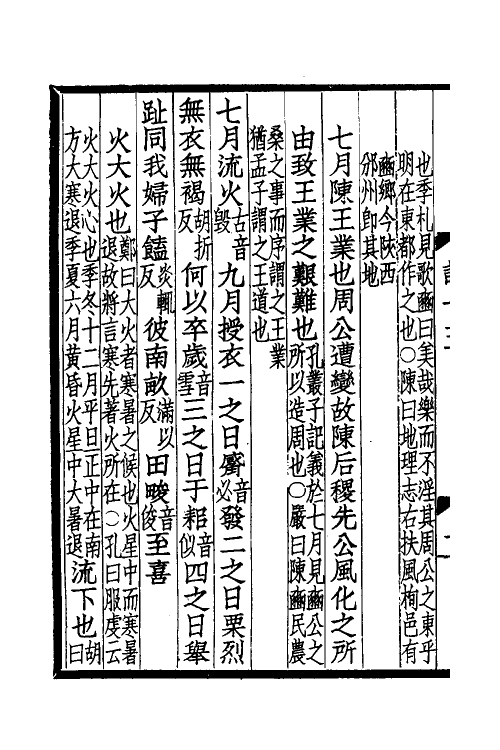 也季札見歌豳曰美哉樂而不淫其周公之東乎
明在東都作之也○陳曰地理志右扶風栒邑有
豳鄉今陝西
邠州卽其地
七月陳王業也周公遭變故陳后稷先公風化之所
由致王業之艱難也孔叢子記義於七月見豳公之
所以造周也○嚴曰陳豳民農
桑之事而序謂之王業
猶孟子謂之王道也
七月流火古音毀九月授衣一之日觱音必發二之日栗烈
無衣無褐胡折反何以卒歲音雪三之日于耜音似四之日舉
趾同我婦子饁炎輒反彼南畝滿以反田畯音俊至喜
火大火也鄭曰大火者寒暑之候也火星中而寒暑
退故將言寒先著火所在○孔曰服虔云
火大火心也季冬十二月平旦正中在南
方大寒退季夏六月黃昏火星中大暑退流下也胡曰